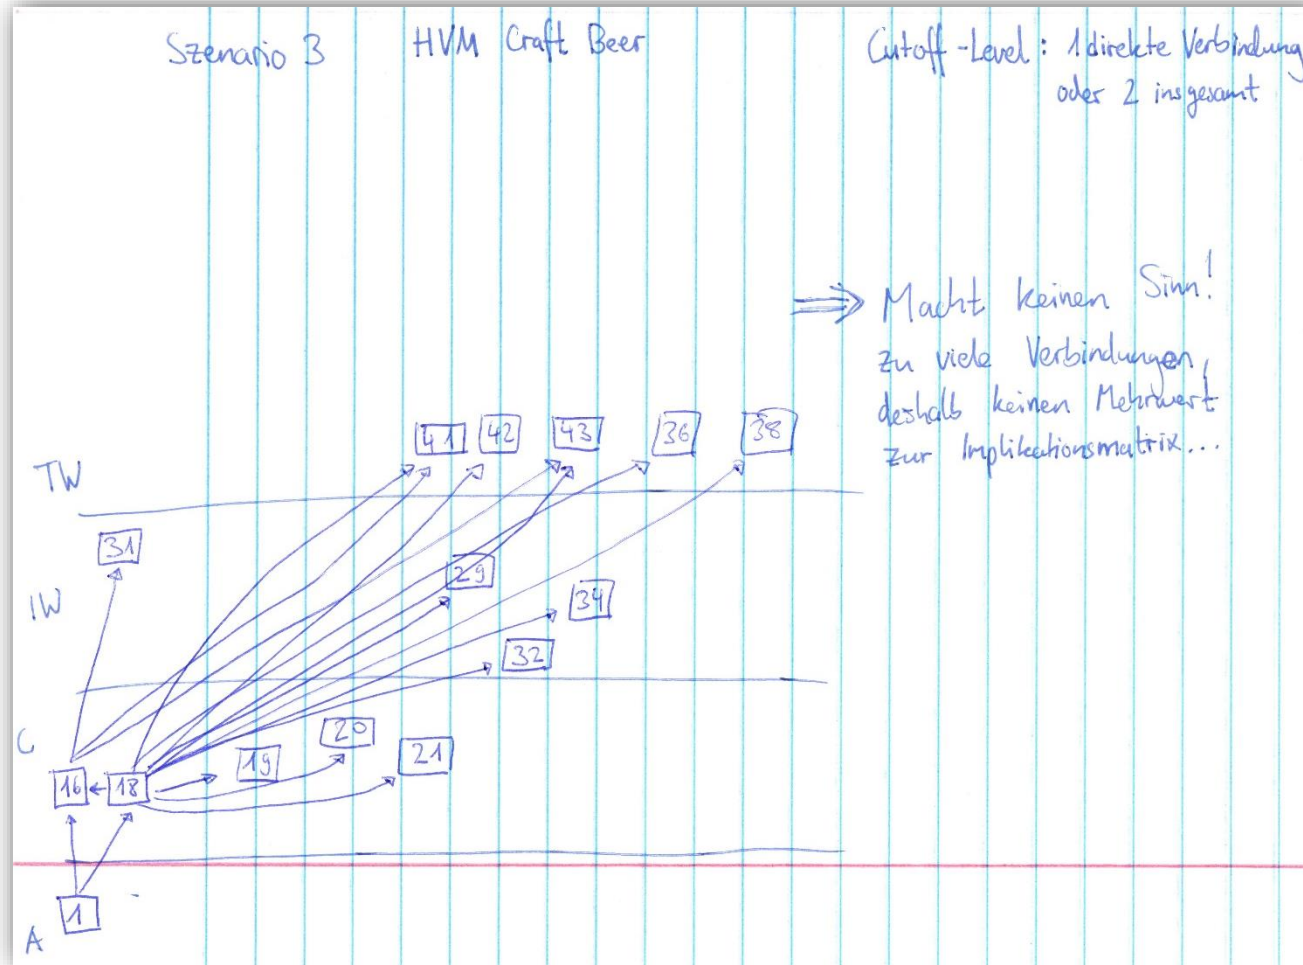 Szenario 3 HVM Craft Beer Cutoff-Level: 1 direkte Verbindung
oder 2 insgesamt
⇒ Macht keinen Sinn!
zu viele Verbindungen,
deshalb keinen Mehrwert
zur Implikationsmatrix...
41 42 43 36 38
TW
31
29
IW
34
32
C
20
19 21
16 18
1
A